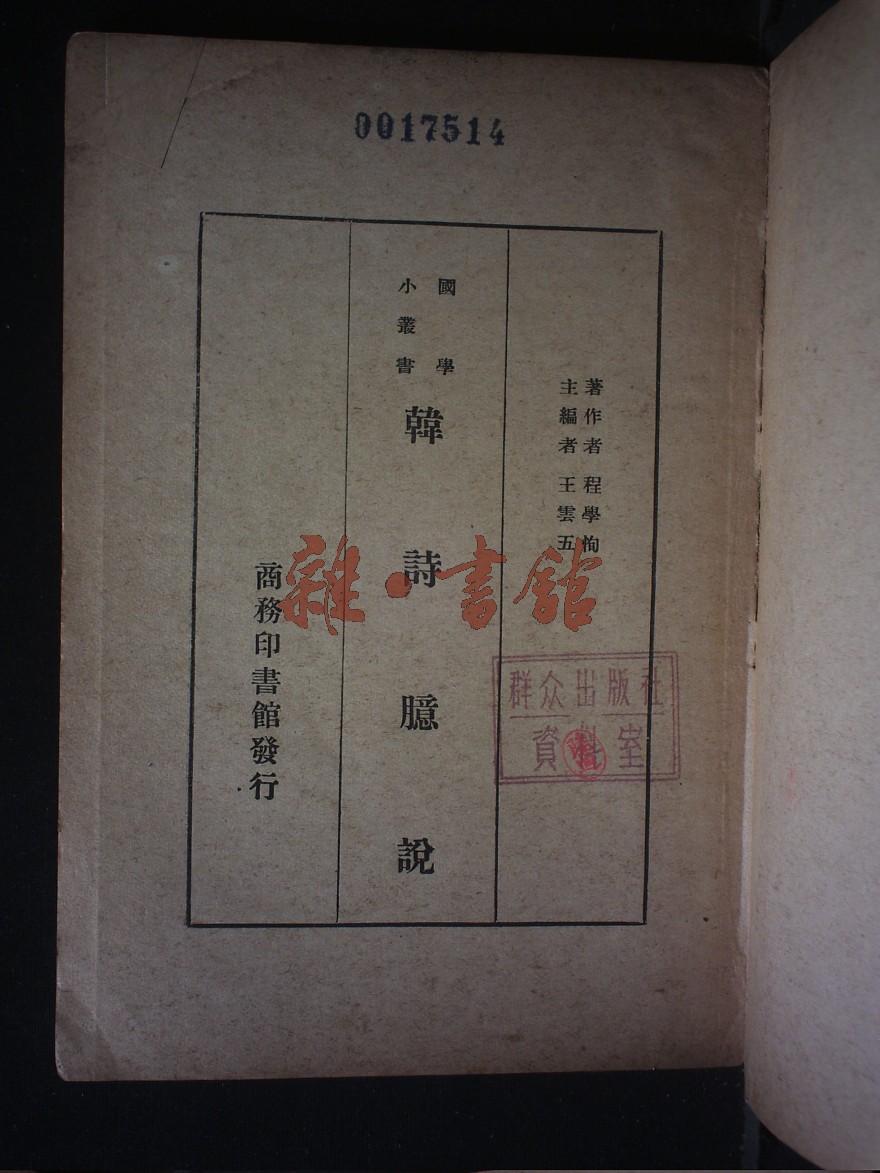 0017514
著作者 程學恂
主編者 王雲五
國學
小叢書
韓詩臆說
商務印書館發行
雜·書館
群众出版社
資料室